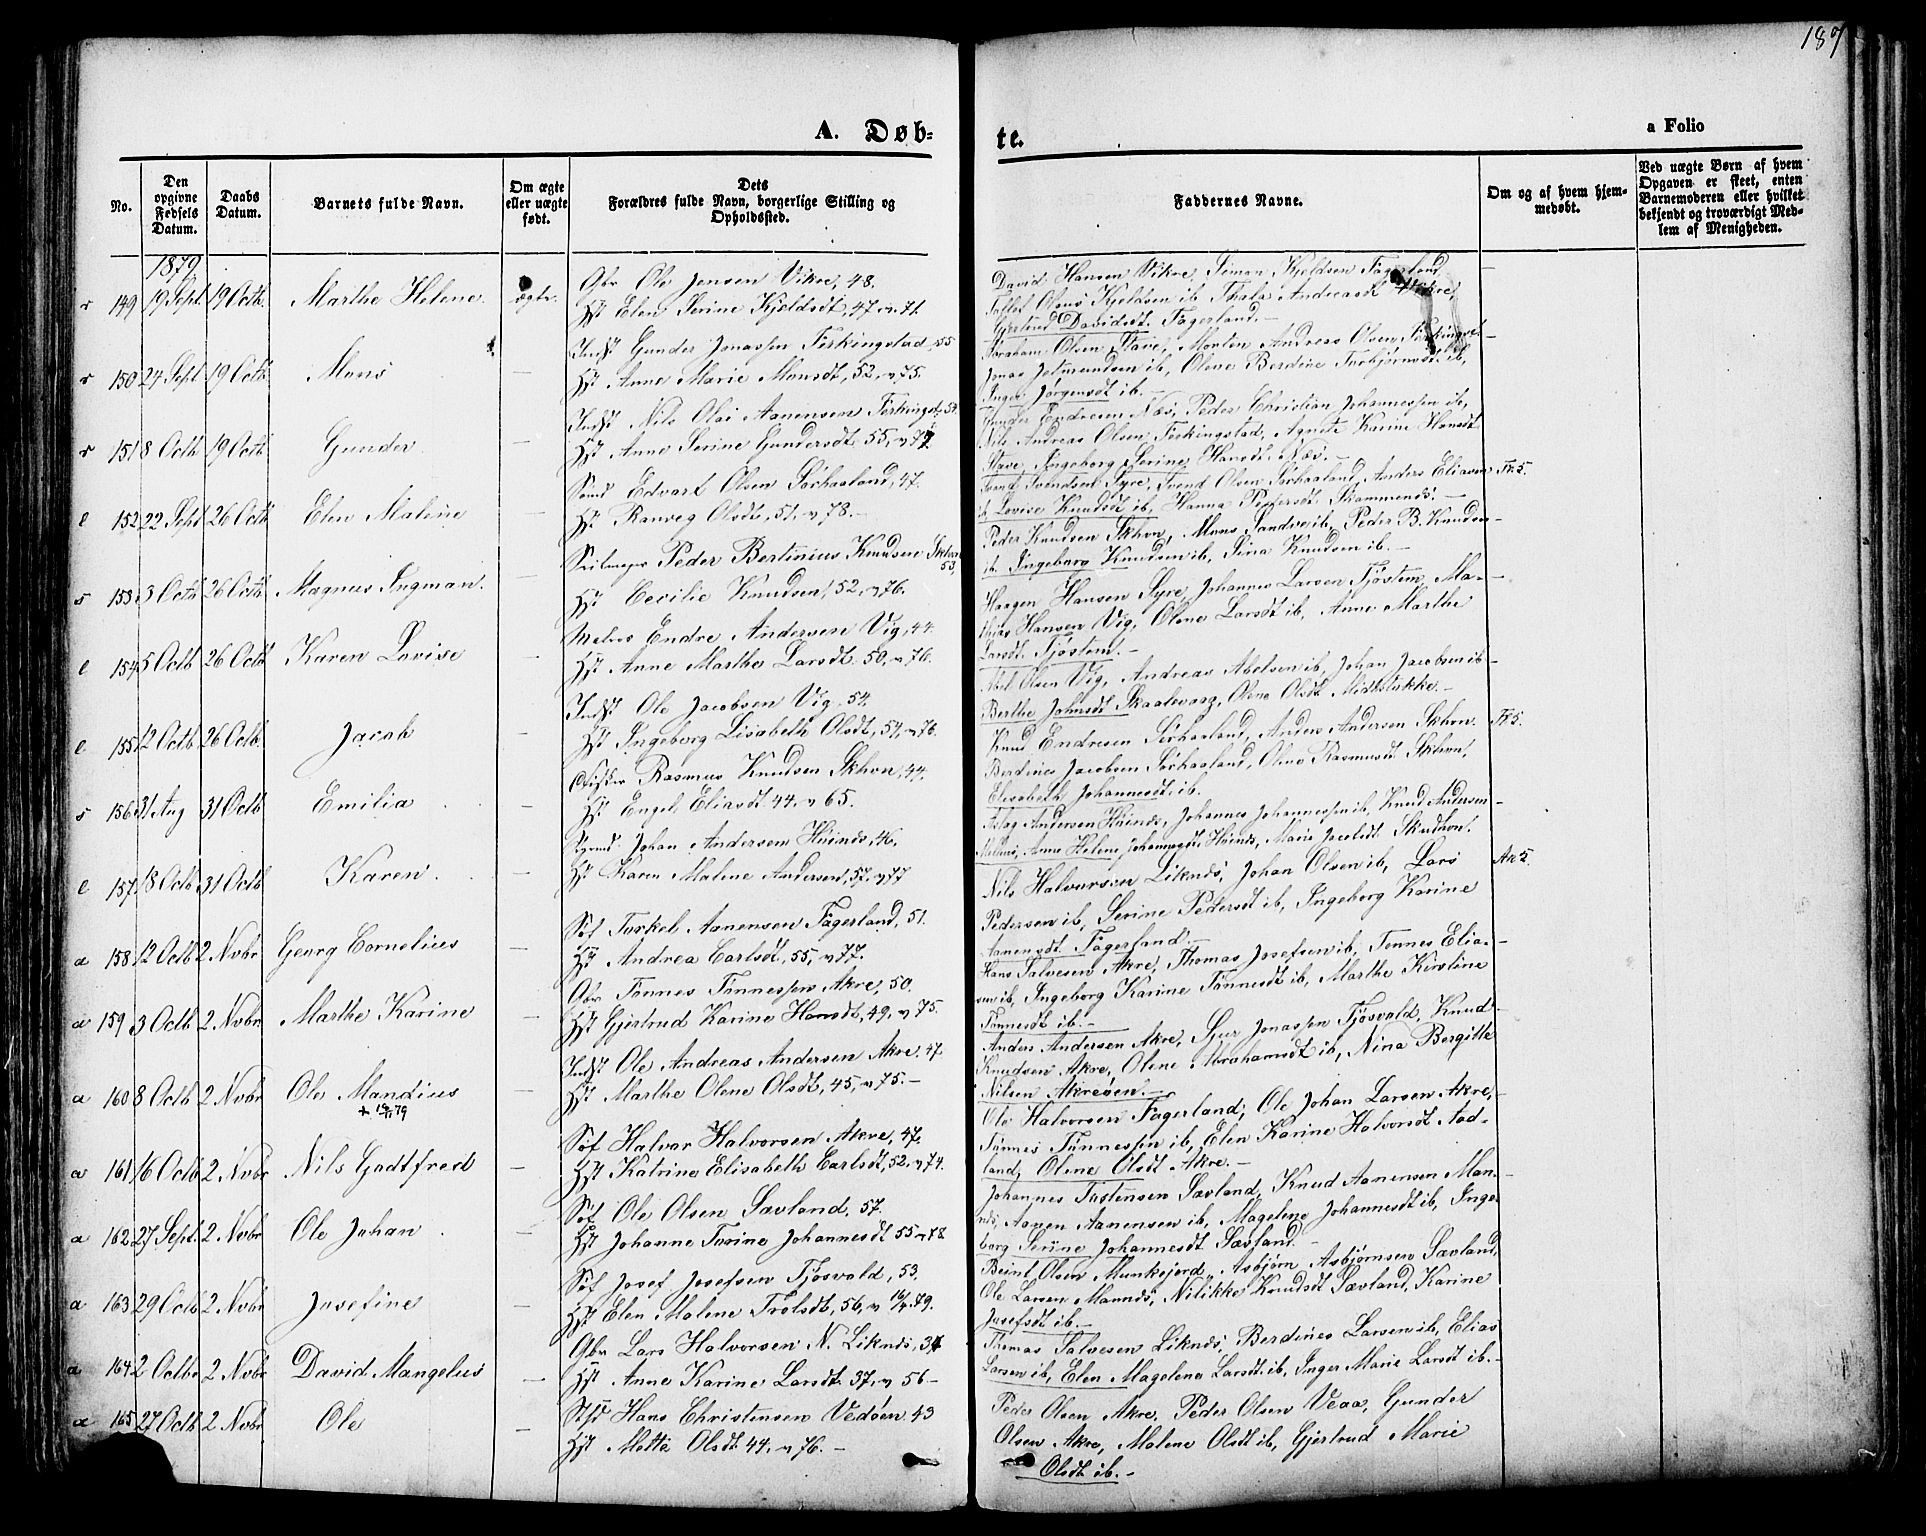 187
A. Døb-
te.
a Folio
No.
Den opgivne Fødsels Datum.
Daabs Datum.
Barnets fulde Navn.
Om ægte eller uægte født.
Dets Forældres fulde Navn, borgerlige Stilling og Opholdssted.
Faddernes Navne.
Om og af hvem hjemmedøbt.
Ved uægte Børn af hvem Opgaven er skeet, enten Barnemoderen eller hvilket bekjendt og troværdigt Medlem af Menigheden.
1879
r 149 19 Sept 19 Octb. Marthe Helene. ægte.
Gbr Ole Jensen Vikre, 48.
Hst Elen Serine Kjeldsdt, 47 v. 71.
David Hansen Vikre, Simon Kjeldsen Fagerland,
Tollef Olsen Kjeldsen ib, Thala Andreasdt Vikre,
Gjertrud Davidsdt. Fagerland. –
r 150 24 Sept 19 Octb Mons –
Indst Gunder Jonassen Ferkingstad, 55
Hst Anne Marie Monsdt, 52, v 75.
Abraham Olsen Stave, Morten Andreas Olsen Ferkingst
Jonas Jetmundsen ib, Olene Berdine Torbjørnsdt. ib,
Inger Jørgensdt ib. –
r 151 8 Octb 19 Octb Gunder –
Indst Nils Olai Aanensen Ferkingst, 54.
Hst Anne Serine Gundersdt 55, v 77
Gunder Endresen Næs, Peder Christian Johannessen ib,
Nils Andreas Olsen Ferkingstad, Agnete Karine Hansdt
Stave, Ingeborg Serine Hansdt. Næs. –
l 152 22 Sept 26 Octb Elen Maline –
Edvart Olsen Sørhaaland, 47.
Hst Ranveg Olsdt, 51, v 78. –
Svend Svendsen Syre, Svend Olsen Sørhaaland, Anders Eliasen
ib, Lovise Knudsdt ib, Hanna Pedersdt. –
s 153 3 Octb 26 Octb Magnus Ingman. –
Seilmager Peder Bertinius Knudsen Skhvn 53,
Hst Cecilie Knudsen, 52, v 76.
Peder Knudsen Skhvn, Mons Sandve ib, Peder B. Knudsen
ib. Ingeborg Knudsen ib, Sina Knudsen ib. –
l 154 5 Octb 26 Octb Karen Lovise –
Matros Endre Andersen Vig, 44.
Hst Anne Marthe Larsdt. 50, v 76.
Haagen Hansen Syre, Johannes Larsen Tjøstem, Ma-
thias Hansen Vig, Olene Larsdt ib, Anne Marthe
Larsdt. Tjøstem. –
l 155 12 Octb 26 Octb. Jacob –
Indst Ole Jacobsen Vig, 54.
Hst Ingeborg Lisabeth Olsdt, 54, v 76.
Abel Olsen Vig, Andreas Abelsen ib, Johan Jacobsen ib –
Berthe Johnsdt Skaalevaag, Olene Olsdt Midtstykke. –
s 156 31 Aug 31 Octb Emilia –
Rasmus Knudsen Skhvn, 44.
Hst Engel Eliasdt 44, v 65.
Knud Endresen Sørhaaland, Anders Andersen Skhvn.
Berdines Jacobsen Sørhaaland, Olene Rasmusdt Skhvn,
Elisabeth Johannesdt. ib.
l 157 18 Octb 31 Octb Karen. –
Johan Andersen Hvinds, 46.
Hst Karen Maline Andersen, 57, v 77
Aslag Andersen Hvinds, Johannes Johannessen ib, Knud Andersen
Anne Helene Johannesdt. Hvinds, Marie Jacobsdt. Skudhvn.
a 158 12 Octb 2 Nvbr. Georg Cornelius –
Søf Torkel Aanensen Fagerland, 51.
Hst Andrea Carlsdt, 55, v 77.
Nils Halvorsen Liknæs, Johan Olsen ib, Lars
Pedersen ib, Serine Pedersdt ib, Ingeborg Karine
Aanensdt. Fagerland. –
a 159 3 Octb 2 Nvbr Marthe Karine –
Gbr Tønnes Tønnessen Akre, 50.
Hst Gjertrud Karine Hansdt, 49, v 75.
Hans Salvesen Akre, Thomas Josefsen ib, Tønnes Elia-
sen ib, Ingeborg Karine Tønnesdt ib, Marthe Kirstine
Tønnesdt ib. –
a 160 8 Octb 2 Nvbr Ole Mandius –
Indst Ole Andreas Andersen Akre, 47.
Hst Marthe Olene Olsdt, 45, v 75. –
Anders Andersen Akre, Sjur Jonassen Tjøsvold, Knud
Knudsen Akre, Olene Abrahamsdt ib, Nina Bergitte
Nilsen Akreøen. –
a 161 16 Octb 2 Nvbr Nils Godtfred –
Søf Halvor Halvorsen Akre, 47.
Hst Katrine Elisabeth Carlsdt, 52, v 74.
Ole Halvorsen Fagerland, Ole Johan Larsen Akre,
Tønnes Tønnessen ib, Elen Karine Halvorsdt Aad-
land, Olene Olsdt Akre. –
a 162 27 Sept. 2 Nvbr Ole Johan –
Søf Ole Olsen Sævland, 57.
Hst Johanne Torine Johannesdt 55 v 78
Johannes Torstensen Sævland, Knud Aanensen Man-
næs, Aanen Aanensen ib, Magelene Johannesdt ib, Inge-
borg Serine Johannesdt Sævland. –
a 163 29 Octb 2 Nvbr Josefine –
Søf Josef Josefsen Tjøsvold, 53.
Hst Elen Malene Trolsdt, 56, v 16/4 79.
Beint Olsen Munkejord, Asbjørn Asbjørnsen Sævland,
Ole Larsen Mannæs, Nilikke Knudsdt Sævland, Karine
Josefsdt ib. –
a 164 2 Octb 2 Nvbr David Mangelus –
Gbr Lars Halvorsen N. Liknæs, 34
Hst Anne Karine Larsdt. 37, v 56 –
Thomas Salvesen Liknæs, Berdines Larsen ib, Elias
Larsen ib, Elen Magelena Larsdt. ib, Inger Marie Larsdt ib. –
a 165 27 Octb 2 Nvbr Ole –
Hans Christensen Vedøen 43
Hst Mette Olsdt. 44, v 76. –
Peder Olsen Akre, Peder Olsen Veaa, Gunder
Olsen Akre, Malene Olsdt ib, Gjertrud Marie
Olsdt ib. –